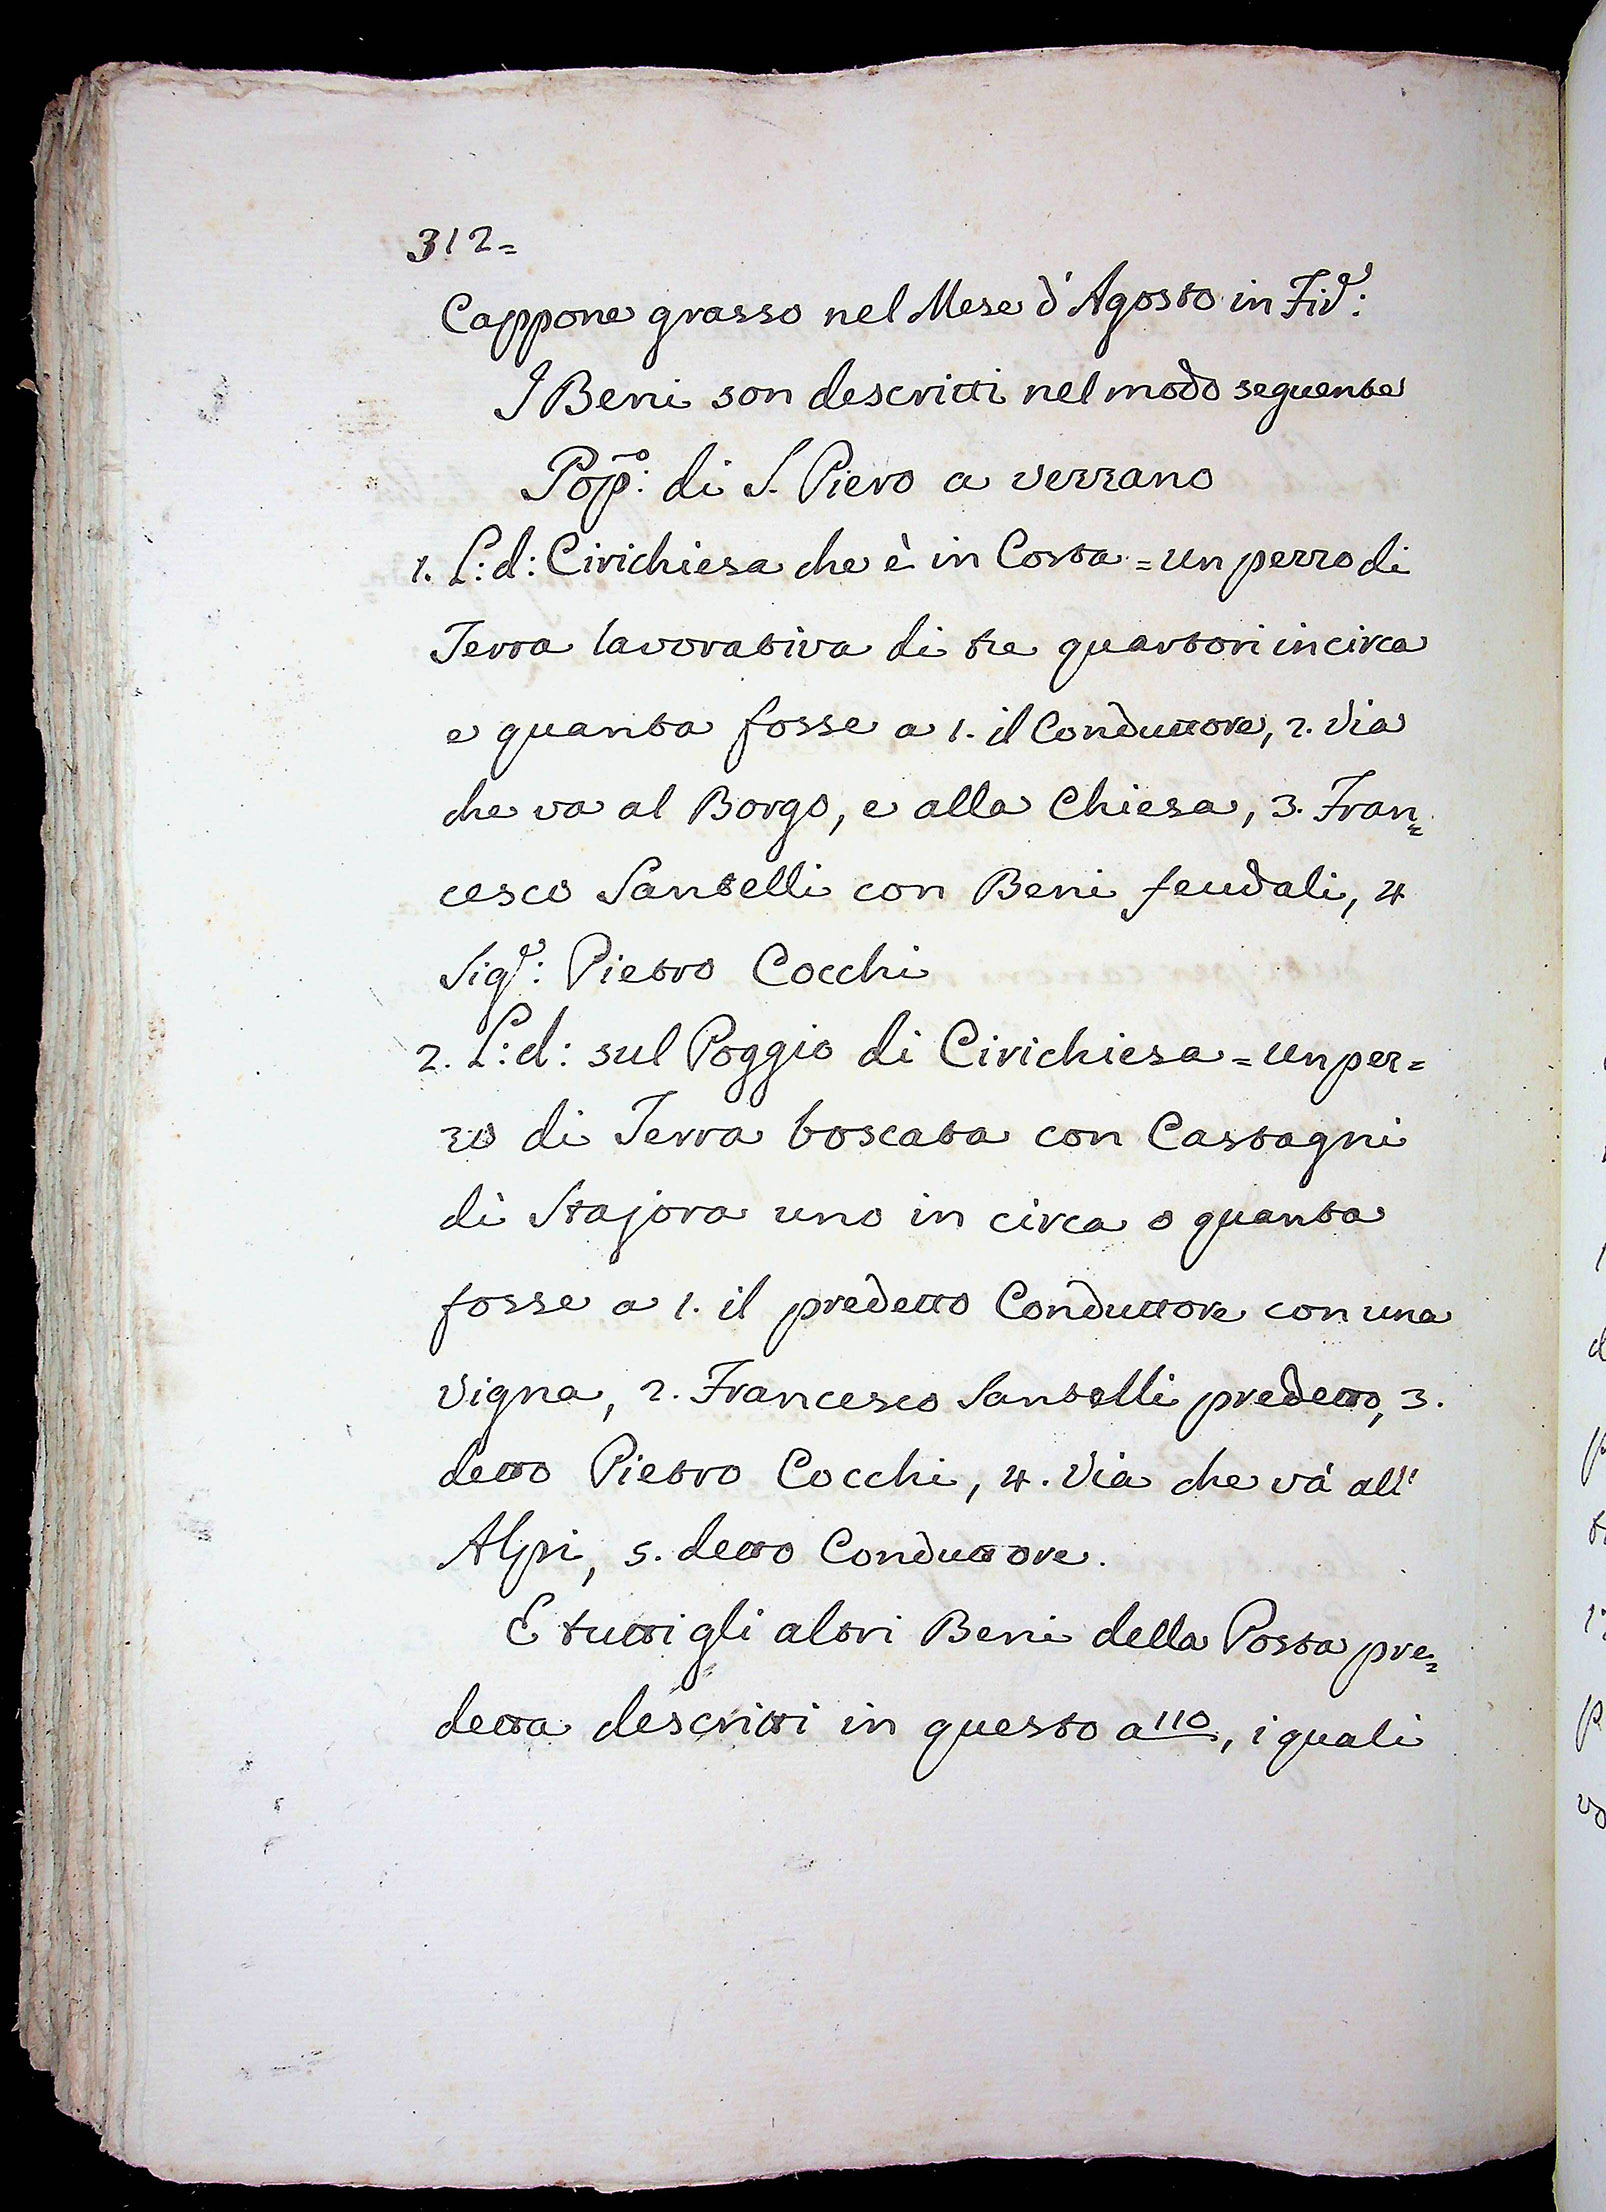 312=
Cappone grasso nel Mese d'Agosto in Fid:
I Beni son descritti nel modo seguente
Popõ: di S. Piero a verzano
1. L:d: Cirichiesa che è in Costa = un pezzo di
Terra lavorativa di tre quartori incirca
e quanta fosse a 1. il Conduttore, 2. Via
che va al Borgo, e alla Chiesa, 3. Fran=
cesco Santelli con Beni feudali, 4
Sigr: Pietro Cocchi
2. L:d: sul Poggio di Cirichiesa = un pez=
zo di Terra boscata con Castagni
di Stajora uno in circa o quanta
fosse a 1. il predetto Conduttore con una
Vigna, 2. Francesco Santelli predetto, 3.
detto Pietro Cocchi, 4. Via che và all'
Alpi, 5. detto Conduttore.
E tutti gli altri Beni della Posta pre=
detta descritti in questo a 110, i quali